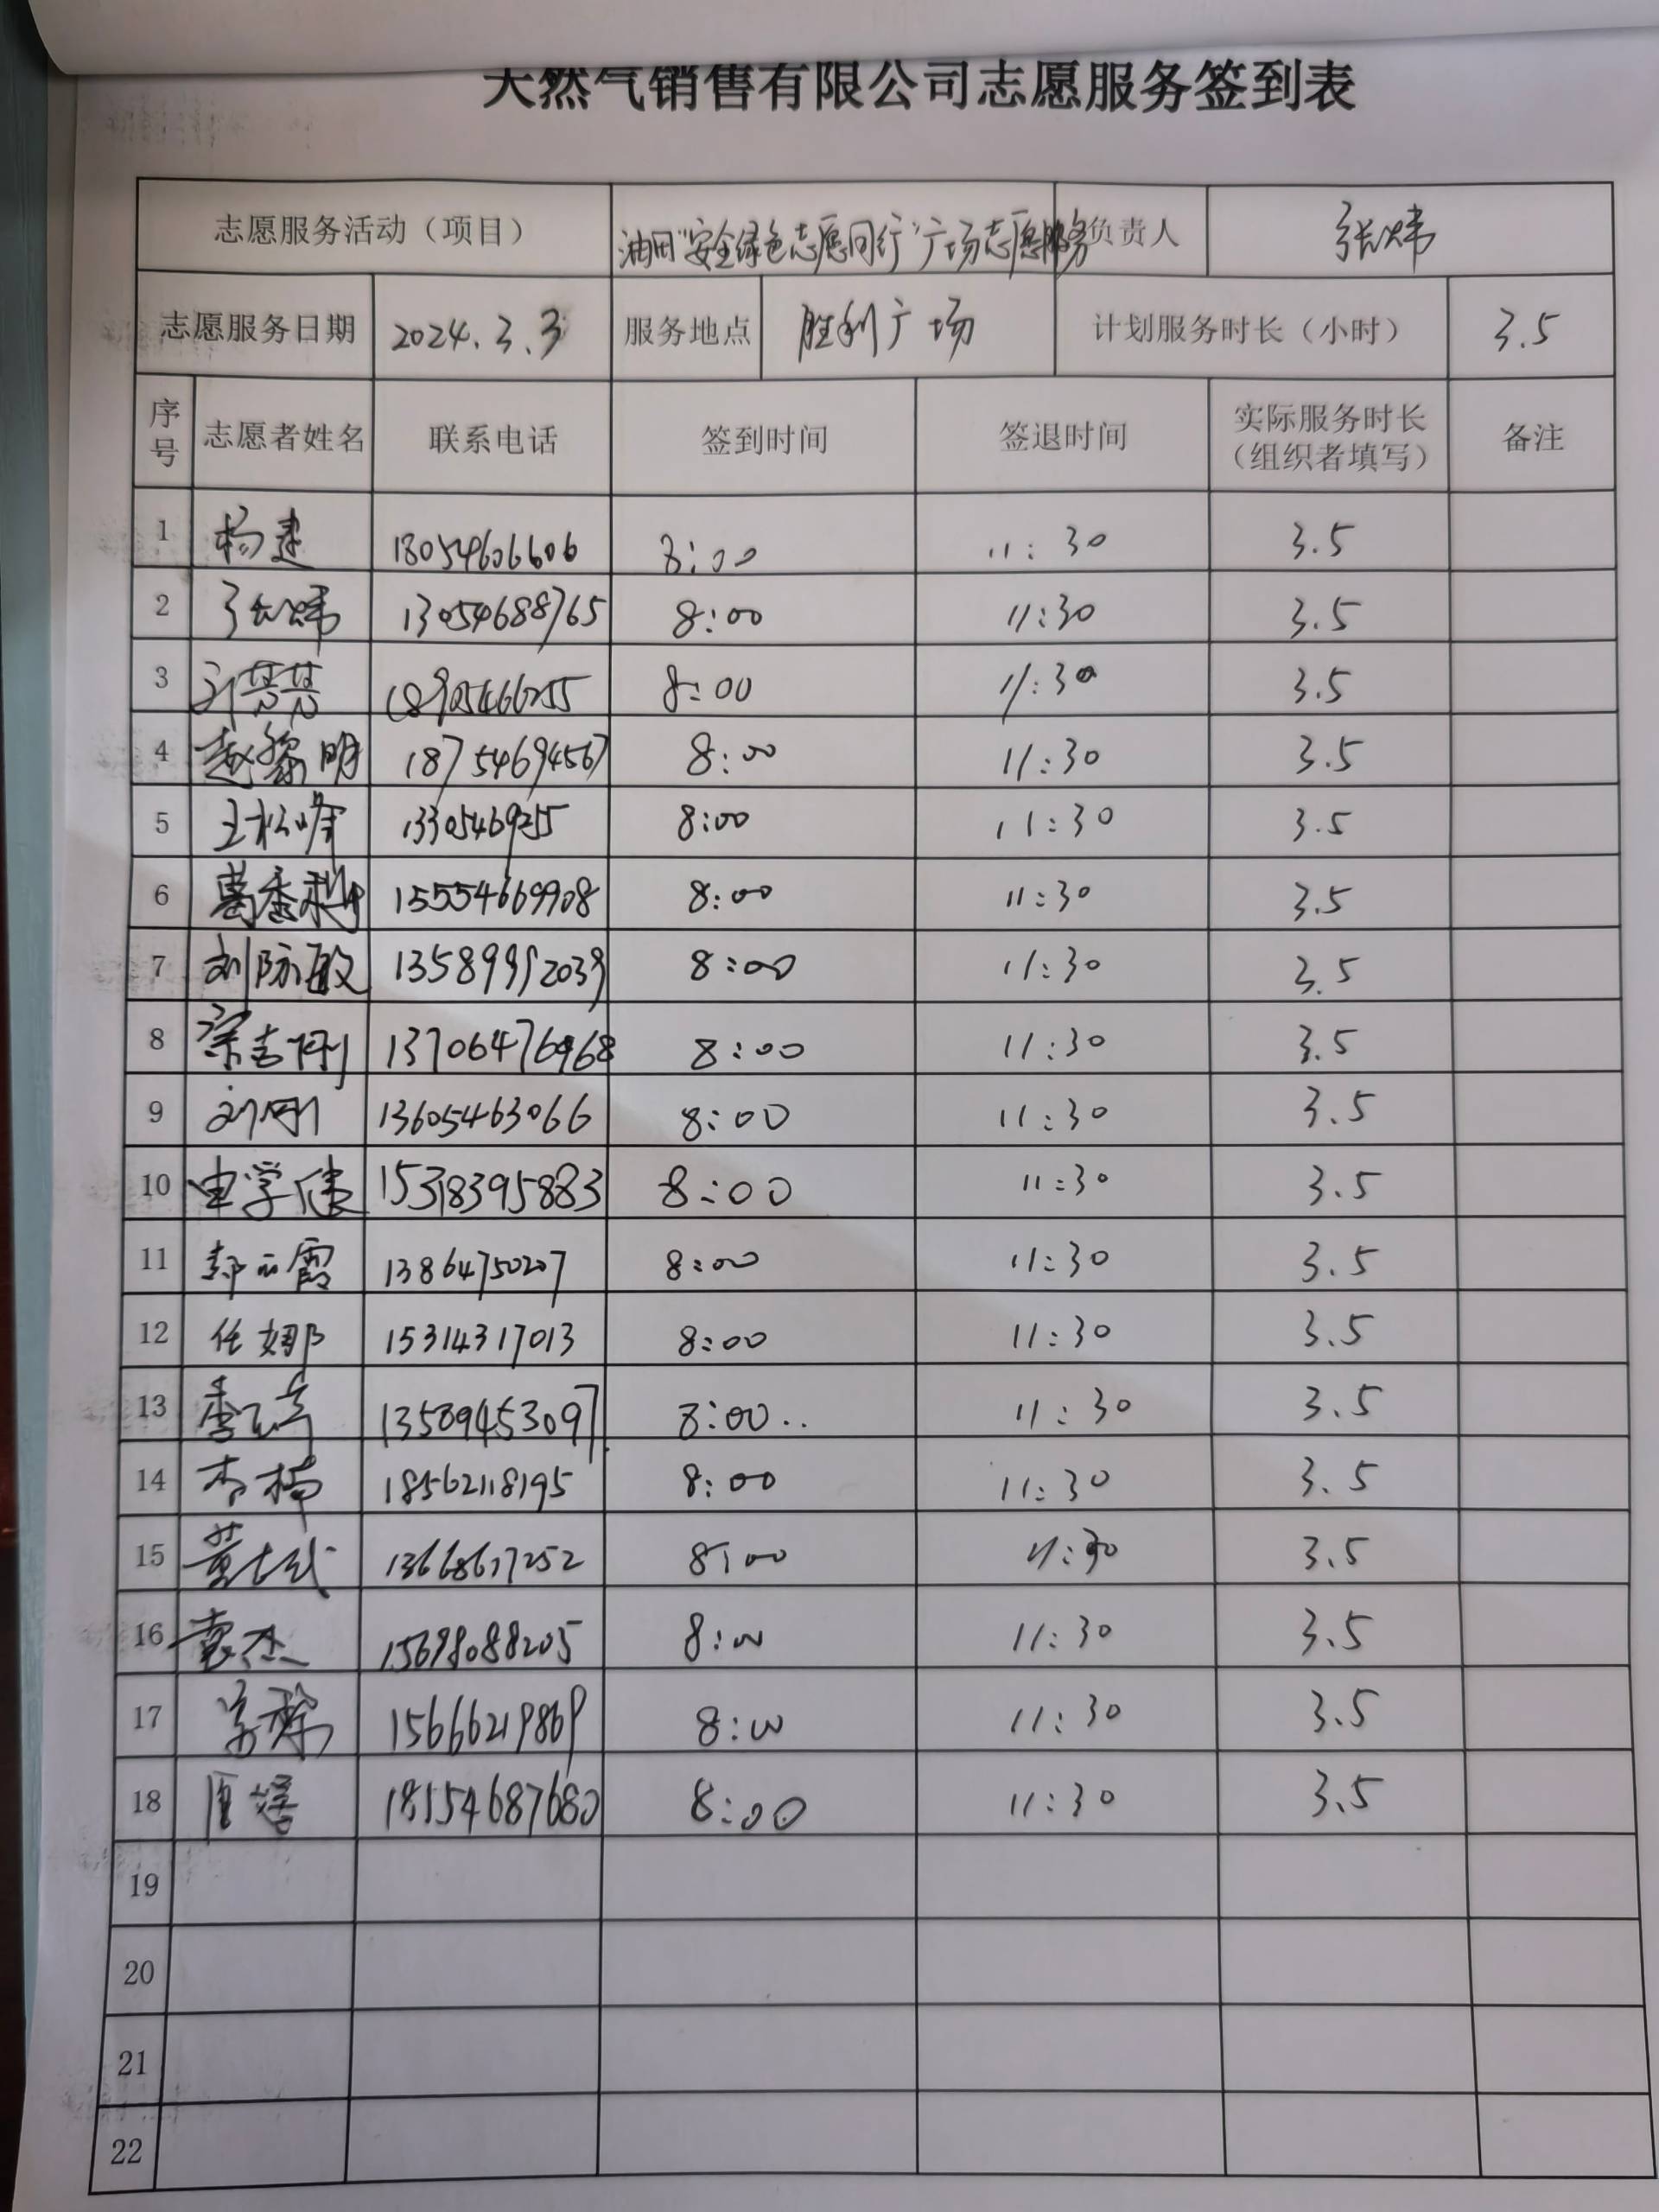 天然气销售有限公司志愿服务签到表
志愿服务活动（项目） 油田“安全绿色志愿同行”广场志愿服务 负责人 张炜
志愿服务日期 2024.3.3 服务地点 胜利广场 计划服务时长（小时） 3.5
序号 志愿者姓名 联系电话 签到时间 签退时间 实际服务时长（组织者填写） 备注
1 杨建 18054606606 8:00 11:30 3.5
2 张炜 13054688765 8:00 11:30 3.5
3 8:00 11:30 3.5
4 赵黎明 18754694567 8:00 11:30 3.5
5 王松峰 8:00 11:30 3.5
6 15554669908 8:00 11:30 3.5
7 13589992039 8:00 11:30 3.5
8 宗志刚 13706476968 8:00 11:30 3.5
9 刘刚 13605463066 8:00 11:30 3.5
10 15318395883 8:00 11:30 3.5
11 13864750207 8:00 11:30 3.5
12 任娜 15314317013 8:00 11:30 3.5
13 13589453097 8:00 11:30 3.5
14 李楠 18562118195 8:00 11:30 3.5
15 13668617252 8:00 11:30 3.5
16 袁杰 15698088205 8:00 11:30 3.5
17 15666219869 8:00 11:30 3.5
18 18554687680 8:00 11:30 3.5
19
20
21
22